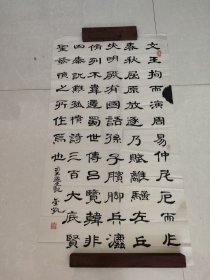 文王拘而演周易仲尼厄而作
春秋屈原放逐乃賦離騷左丘
失明厥有國語孫子臏腳兵灋
脩列不韋遷蜀世傳呂覽韓非
囚秦說難孤憤詩三百大底賢
聖發憤之所作爲也